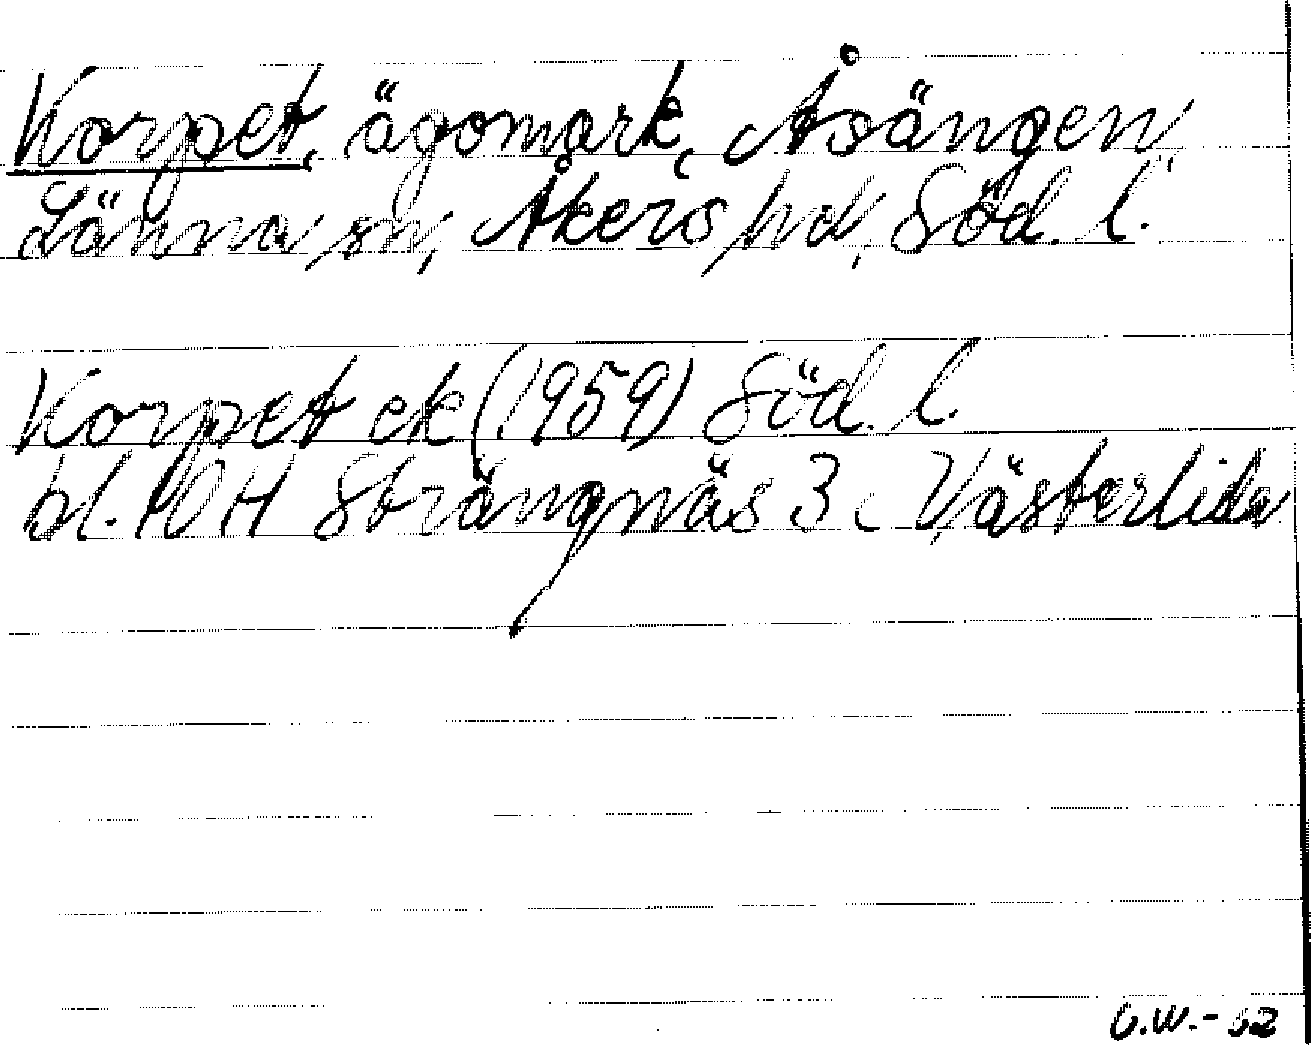 Korpet, ägomark, Åsängen,
Länna sn, Åkers hd, Söd. l.
Korpet ek (1959) Söd. l.
bl. 10 H Strängnäs 3 c Västerlida